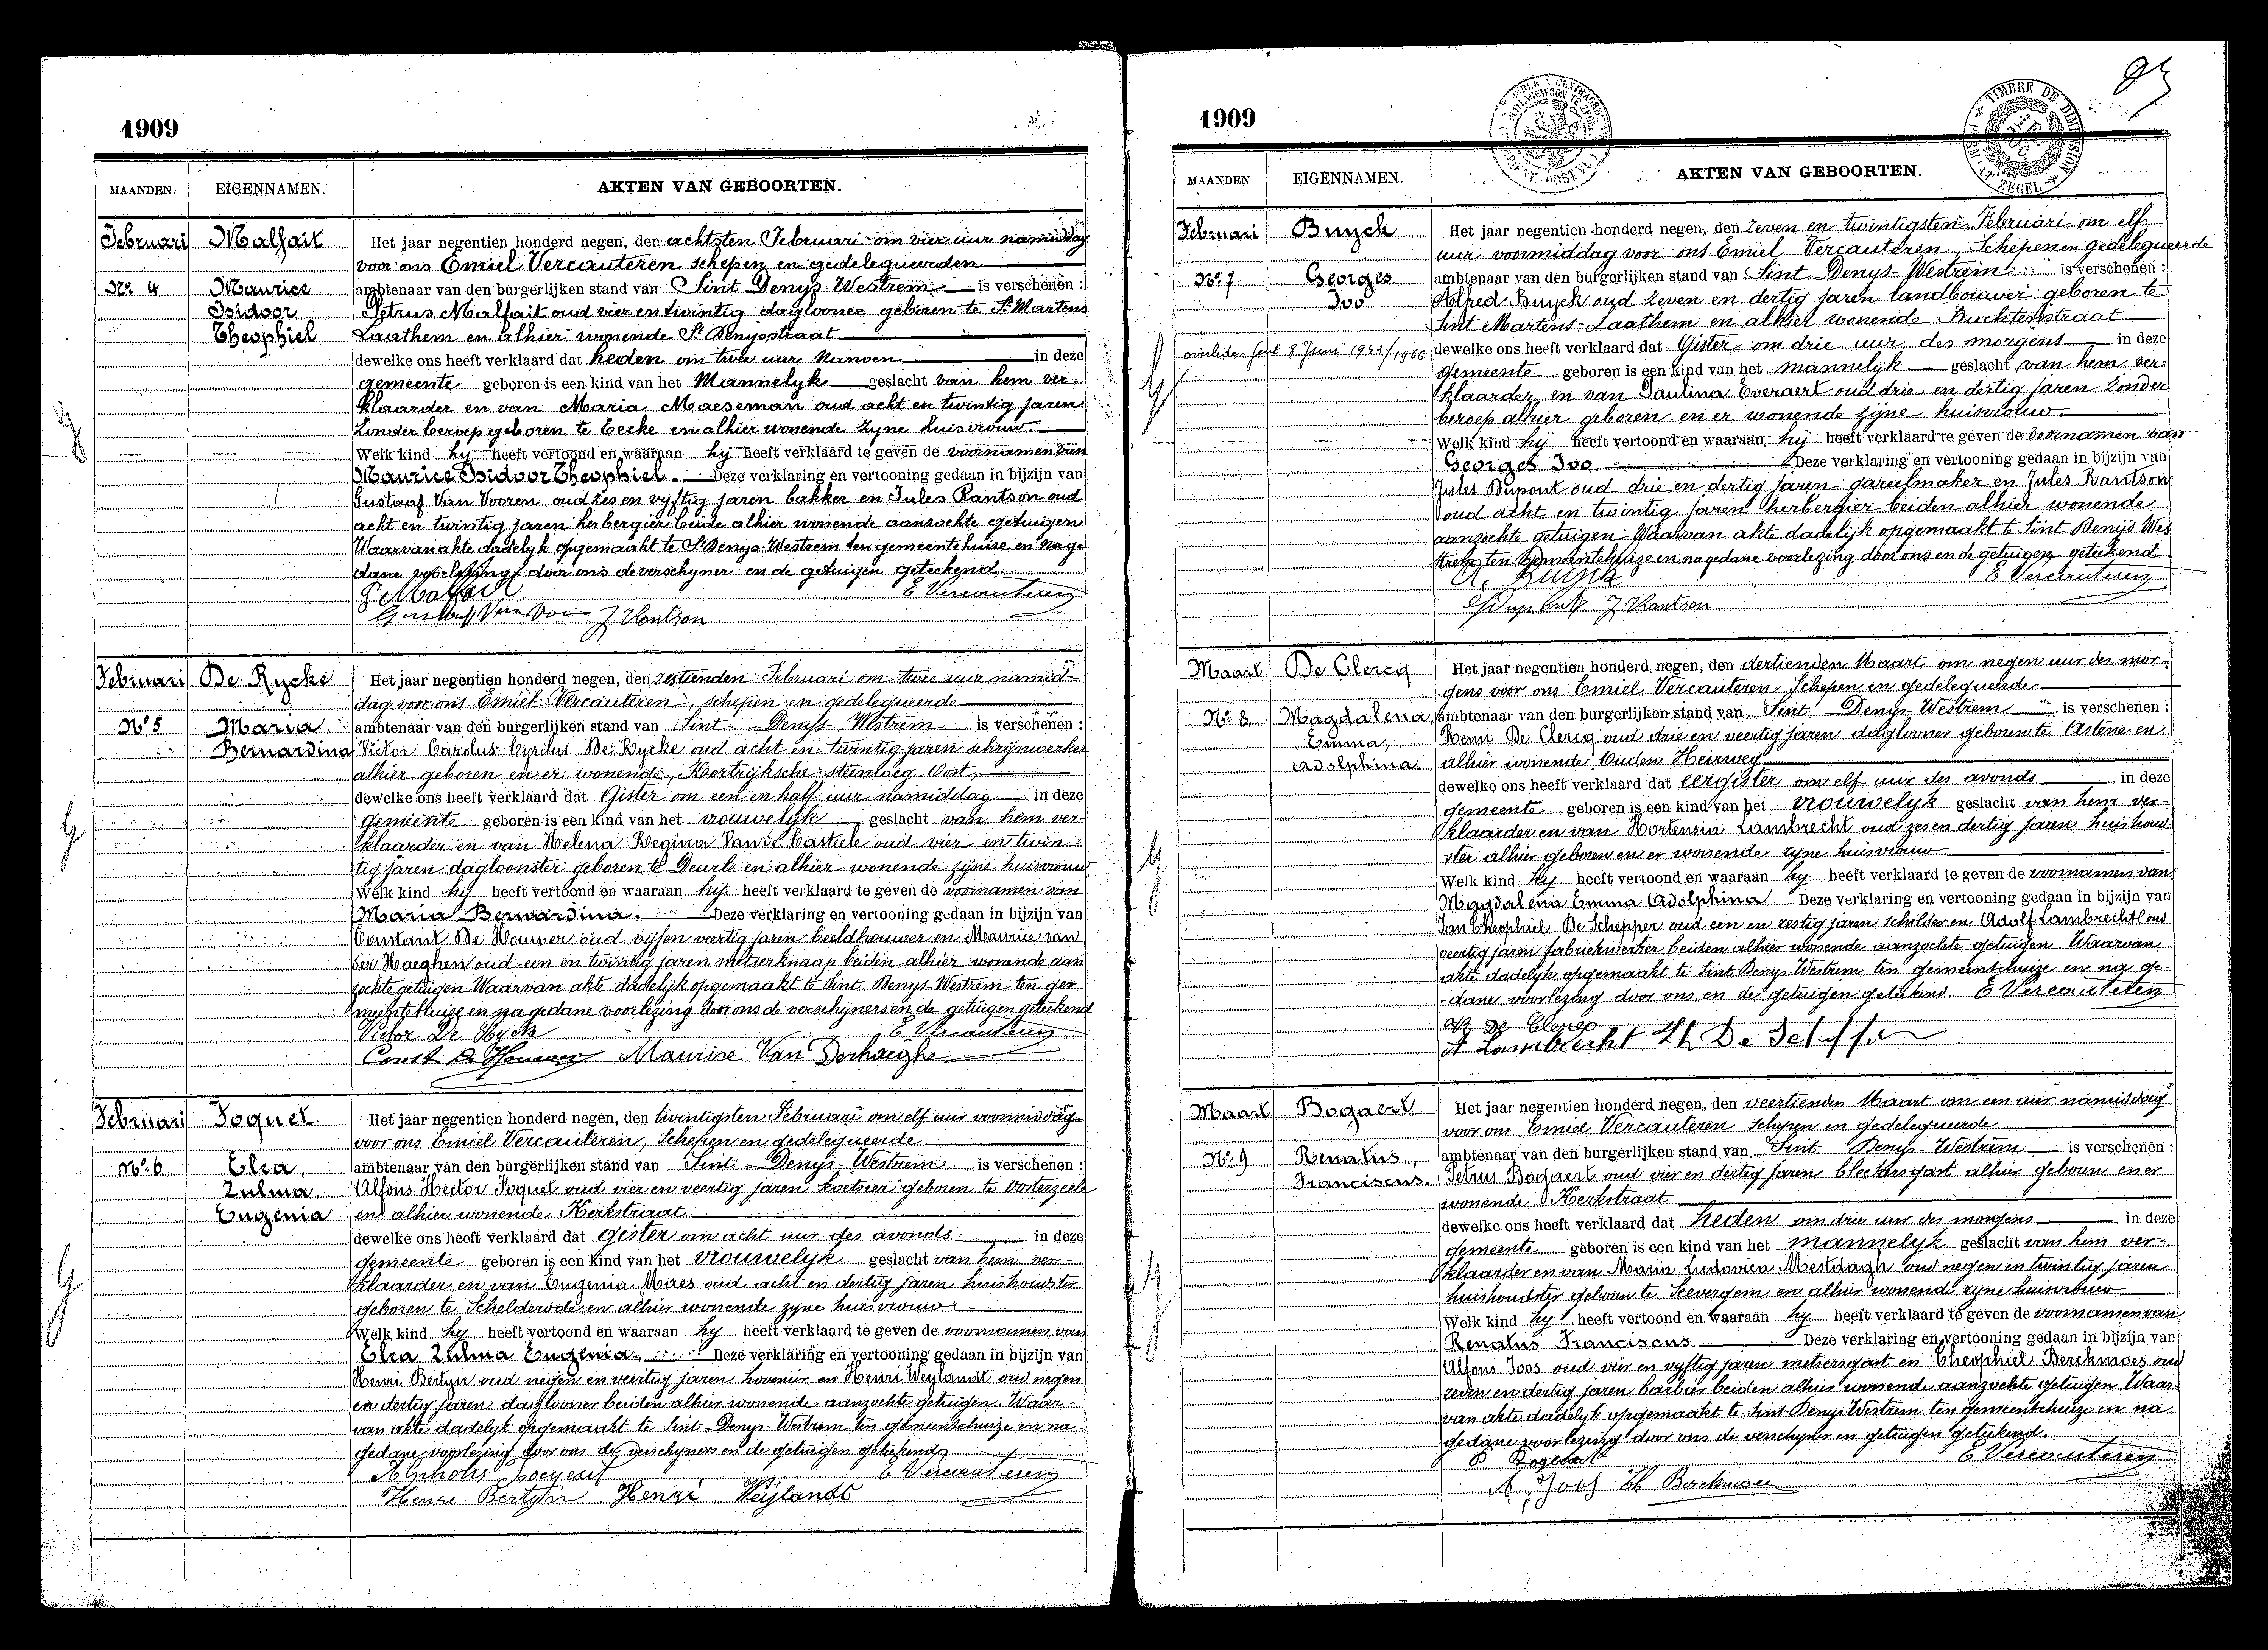 1909
MAANDEN. EIGENNAMEN. AKTEN VAN GEBOORTEN.
Februari Malfait Het jaar negentien honderd negen, den achtsten Februari om vier uur namiddag
voor ons Emiel Vercauteren schepen en gedelegueerden
No. 4 Maurice ambtenaar van den burgerlijken stand van Sint Denys-Westrem is verschenen :
Isidoor Petrus Malfait oud vier en twintig daglooner geboren te St Martens
Theophiel Laathem en alhier wonende St Denysstraat
dewelke ons heeft verklaard dat heden om twee uur Nanoen in deze
gemeente geboren is een kind van het Mannelyk geslacht van hem ver-
klaarder en van Maria Maeseman oud acht en twintig jaren
Zonder beroep geboren te Eecke en alhier wonende zyne huisvrouw.
Welk kind hy heeft vertoond en waaraan hy heeft verklaard te geven de voornamen van
Maurice Isidoor Theophiel. Deze verklaring en vertooning gedaan in bijzijn van
Gustaaf Van Vooren oud zes en vyftig jaren bakker en Jules Rantson oud
acht en twintig jaren herbergier beide alhier wonende aanzochte getuigen
Waarvan akte dadelyk opgemaakt te St Denys-Westrem ten gemeentehuize en na ge
dane voorlezing door ons de verschyner en de getuigen geteekend.
P Malfait E Vercauteren
Gustaaf Van Voo J Rantson
Februari De Rycke Het jaar negentien honderd negen, den zestienden Februari om twee uur namid-
dag voor ons Emiel Vercauteren, schepen en gedelegueerde
No. 5 Maria ambtenaar van den burgerlijken stand van Sint Denys-Westrem is verschenen :
Bernardina Victor Carolus Cyrilus De Rycke oud acht en twintig jaren schrijnwerker
alhier geboren en er wonende, Kortrijksche steenweg Oost,
dewelke ons heeft verklaard dat Gister om een en half uur namiddag in deze
Gemeente geboren is een kind van het vrouwelijk geslacht van hem ver-
klaarder en van Helena Regina Van de Casteele oud vier en twin-
tig jaren dagloonster geboren te Deurle en alhier wonende zijne huisvrouw
Welk kind hij heeft vertoond en waaraan hij heeft verklaard te geven de voornamen van
Maria Bernardina. Deze verklaring en vertooning gedaan in bijzijn van
Constant De Houwer oud vijf en veertig jaren beeldhouwer en Maurice van
der Haeghen oud een en twintig jaren metserknaap beiden alhier wonende aan
zochte getuigen Waarvan akte dadelijk opgemaakt te Sint Denys-Westrem ten ge-
meentehuize en na gedane voorlezing door ons de verschijners en de getuigen geteekend
Victor De Rycke E Vercauteren
Const De Houwer Maurice Van Derhaeghe
Februari Poquet Het jaar negentien honderd negen, den twintigsten Februari om elf uur voormiddag
voor ons Emiel Vercauteren, Schepen en gedelegueerde
No. 6 Elza, ambtenaar van den burgerlijken stand van Sint Denys-Westrem is verschenen :
Zulma, Alfons Hector Poquet oud vier en veertig jaren koetsier geboren te Oosterzeele
Eugenia en alhier wonende Kerkstraat
dewelke ons heeft verklaard dat gister om acht uur des avonds in deze
gemeente geboren is een kind van het vrouwelyk geslacht van hem ver-
klaarder en van Eugenia Maes oud acht en dertig jaren huishoudster
geboren te Schelderode en alhier wonende zyne huisvrouw
Welk kind hy heeft vertoond en waaraan hy heeft verklaard te geven de voornamen van
Elza Zulma Eugenia. Deze verklaring en vertooning gedaan in bijzijn van
Henri Bertyn oud negen en veertig jaren hovenier en Henri Weylandt oud negen
en dertig jaren daglooner beiden alhier wonende aanzochte getuigen. Waar-
van akte dadelyk opgemaakt te Sint Denys-Westrem ten gemeentehuize en na-
gedane voorlezing door ons de verschyners en de getuigen geteekend
E Vercauteren
Henri Bertyn Henri Weylandt
1909
TIMBRE DE DIMENSION
ZEGEL
MAANDEN EIGENNAMEN. AKTEN VAN GEBOORTEN.
Februari Buyck Het jaar negentien honderd negen, den Zeven en twintigsten Februari om elf
uur voormiddag voor ons Emiel Vercauteren, Schepenen gedelegueerde
No. 7 Georges ambtenaar van den burgerlijken stand van Sint Denys-Westrem is verschenen :
Ivo Alfred Buyck oud Zeven en dertig jaren landbouwer geboren te
Sint Martens-Laathem en alhier wonende Buchtenstraat
overleden Gent 8 Juni 1943/1966 dewelke ons heeft verklaard dat Gister om drie uur des morgens in deze
Gemeente geboren is een kind van het mannelijk geslacht van hem ver-
klaarder en van Paulina Everaert oud drie en dertig jaren Zonder
beroep alhier geboren en er wonende zijne huisvrouw
Welk kind hij heeft vertoond en waaraan hij heeft verklaard te geven de voornamen van
Georges Ivo Deze verklaring en vertooning gedaan in bijzijn van
Jules Dupont oud drie en dertig jaren gareelmaker en Jules Rantson
oud acht en twintig jaren herbergier beiden alhier wonende
aanzochte getuigen Waarvan akte dadelijk opgemaakt te Sint Denijs Wes
trem ten Gemeentehuize en na gedane voorlezing door ons en de getuigen geteekend
A. Buyck E Vercauteren
J Dupont J Rantson
Maart De Clercq Het jaar negentien honderd negen, den dertienden Maart om negen uur des mor-
gens voor ons Emiel Vercauteren Schepen en gedelegueerde
No. 8 Magdalena, ambtenaar van den burgerlijken stand van Sint Denys-Westrem is verschenen :
Emma, Remi De Clercq oud drie en veertig jaren daglooner geboren te Astene en
Adolphina alhier wonende Ouden Heirweg
dewelke ons heeft verklaard dat eergister om elf uur des avonds in deze
gemeente geboren is een kind van het vrouwelyk geslacht van hem ver-
klaarder en van Hortensia Lambrecht oud zes en dertig jaren huishoud-
ster alhier geboren en er wonende zyne huisvrouw
Welk kind hy heeft vertoond en waaraan hy heeft verklaard te geven de voornamen van
Magdalena Emma Adolphina Deze verklaring en vertooning gedaan in bijzijn van
Jan Theophiel De Schepper oud een en zestig jaren schilder en Adolf Lambrecht oud
veertig jaren fabriekwerker beiden alhier wonende aanzochte getuigen Waarvan
akte dadelyk opgemaakt te Sint Denys-Westrem ten gemeentehuize en na ge-
dane voorlezing door ons en de getuigen geteekend E Vercauteren
R De Clercq
A Lambrecht Th De Schepper
Maart Bogaert Het jaar negentien honderd negen, den veertienden Maart om een uur namiddag
voor ons Emiel Vercauteren schepen en gedelegueerde
No. 9 Renatus, ambtenaar van den burgerlijken stand van Sint Denys-Westrem is verschenen :
Franciscus. Petrus Bogaert oud vier en dertig jaren bleekersgast alhier geboren en er
wonende Kerkstraat
dewelke ons heeft verklaard dat heden om drie uur des morgens in deze
gemeente geboren is een kind van het mannelyk geslacht van hem ver-
klaarder en van Maria Ludovica Mestdagh oud negen en twintig jaren
huishoudster geboren te Seevergem en alhier wonende zyne huisvrouw
Welk kind hy heeft vertoond en waaraan hy heeft verklaard te geven de voornamen van
Renatus Franciscus Deze verklaring en vertooning gedaan in bijzijn van
Alfons Joos oud vier en vyftig jaren metsersgast en Theophiel Berckmoes oud
zeven en dertig jaren barbier beiden alhier wonende aanzochte getuigen Waar-
van akte dadelyk opgemaakt te Sint Denys-Westrem ten gemeentehuize en na
gedane voorlezing door ons de verschyner en getuigen geteekend.
P Bogaert E Vercauteren
A Joos Th Berckmoes